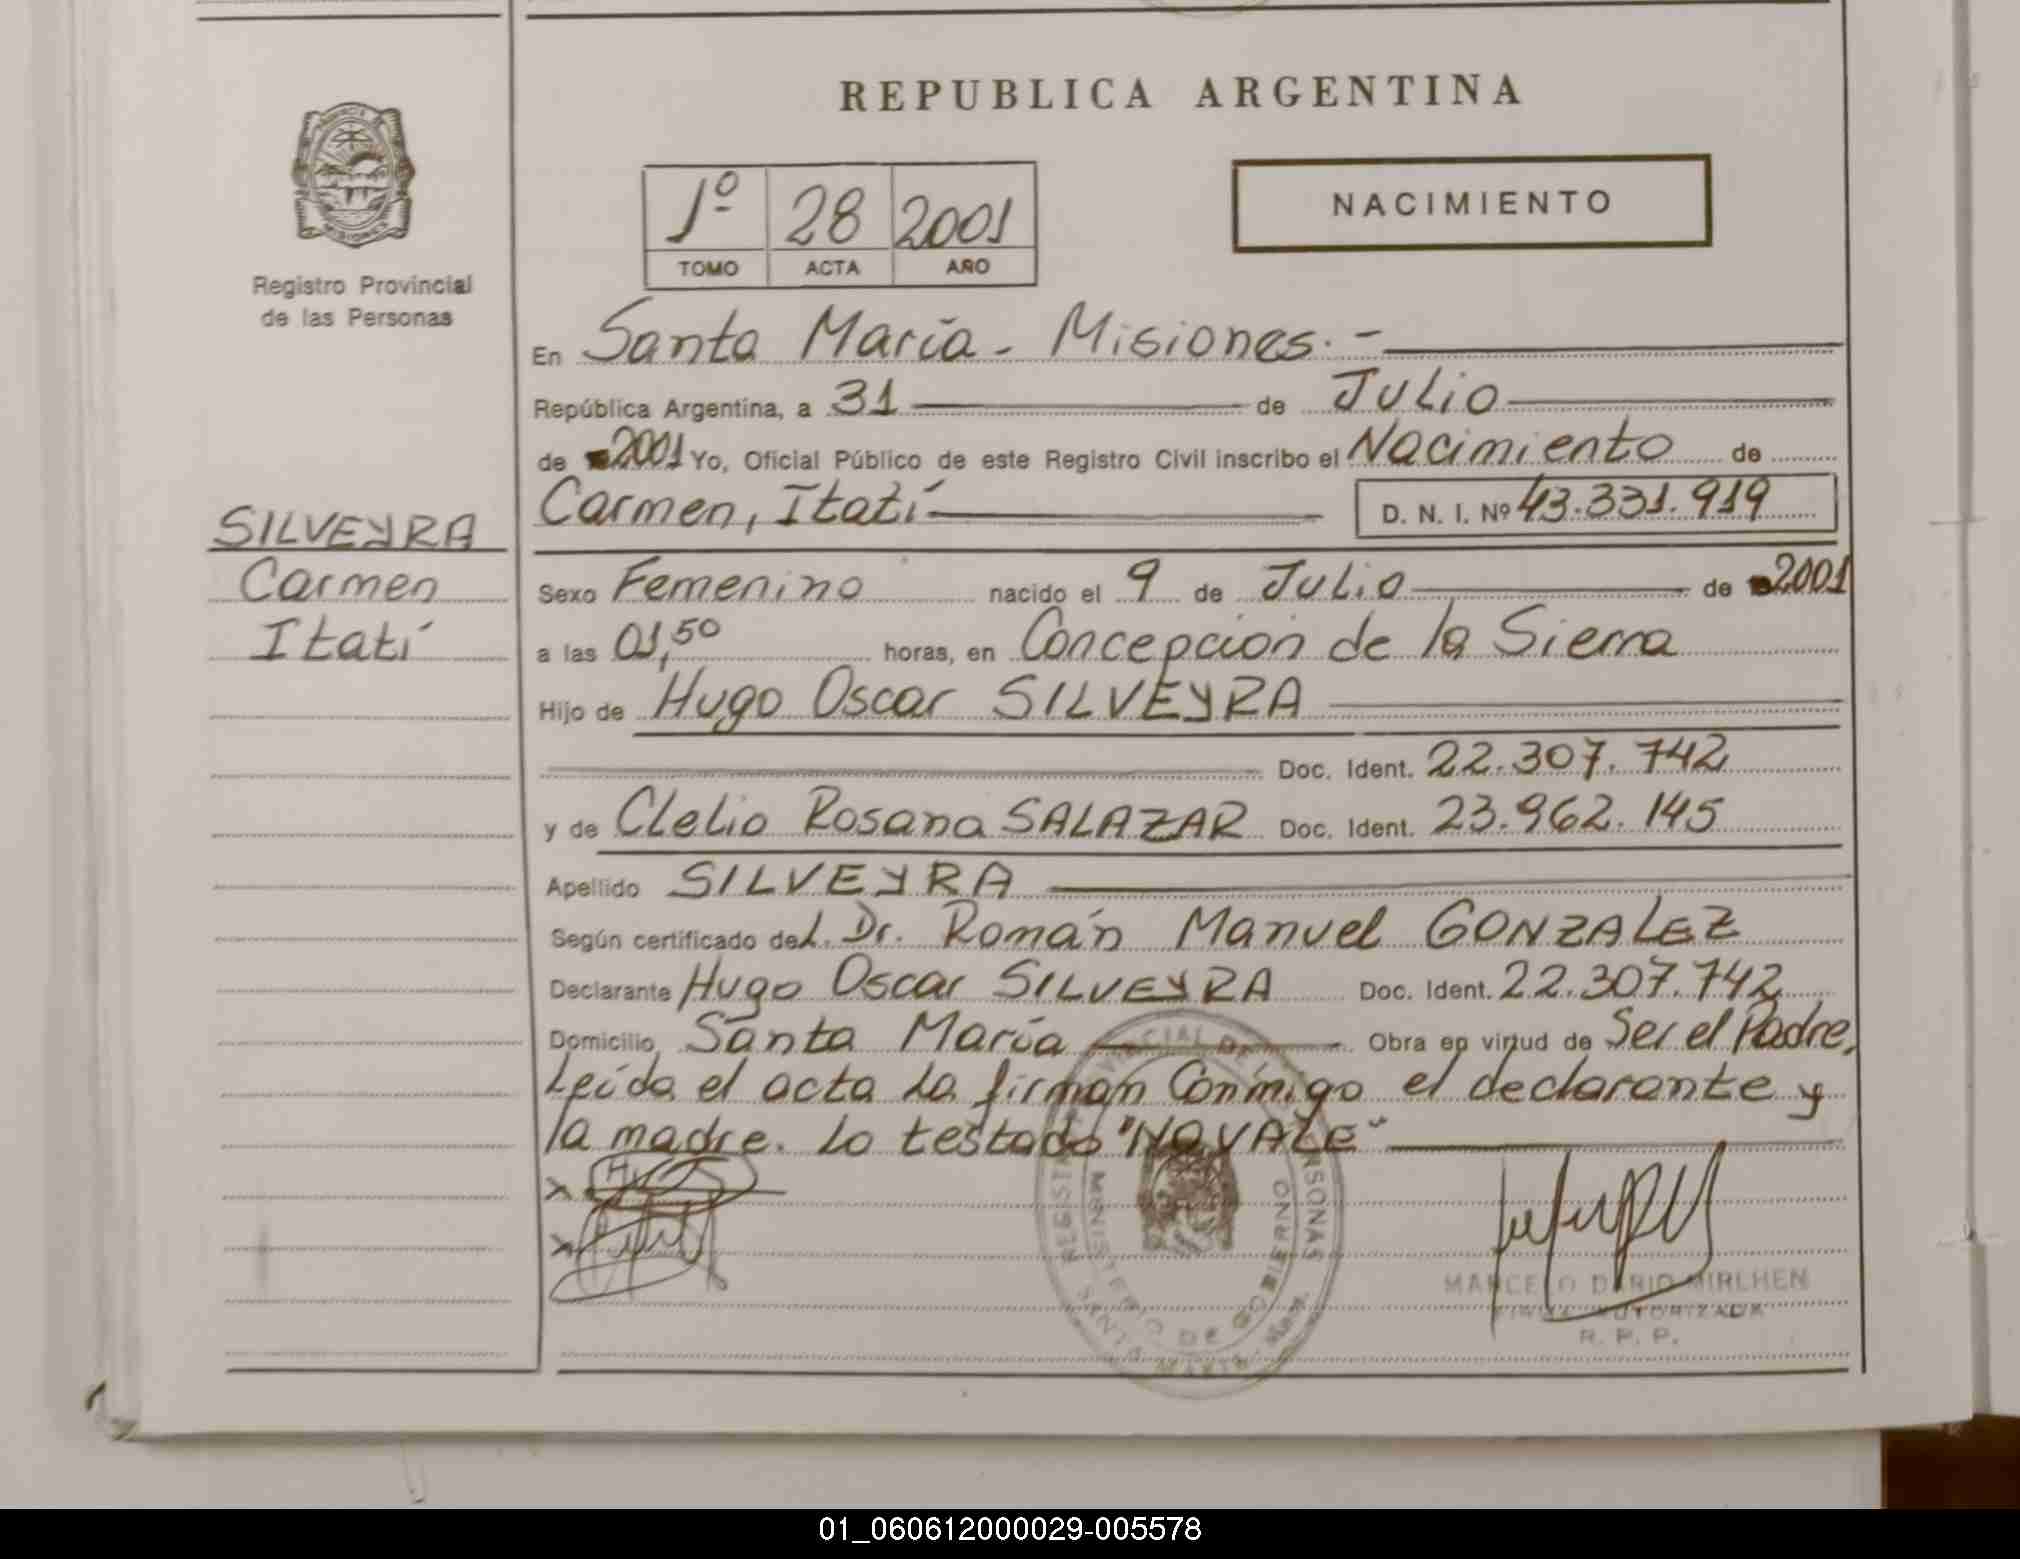 REPUBLICA ARGENTINA
MISIONES
Registro Provincial
de las Personas
1º 28 2001
TOMO ACTA AÑO
NACIMIENTO
En Santa María - Misiones. -
República Argentina, a 31 de Julio
de 2001 Yo, Oficial Público de este Registro Civil inscribo el Nacimiento de
Carmen, Itatí D. N. I. Nº 43.331.919
SILVEYRA
Carmen
Itatí
Sexo Femenino nacido el 9 de Julio de 2001
a las 01,50 horas, en Concepcion de la Sierra
Hijo de Hugo Oscar SILVEYRA
Doc. Ident. 22.307.742
y de Clelia Rosana SALAZAR Doc. Ident. 23.962.145
Apellido SILVEYRA
Según certificado del. Dr. Román Manuel GONZALEZ
Declarante Hugo Oscar SILVEYRA Doc. Ident. 22.307.742
Domicilio Santa María Obra en virtud de Ser el Padre.
Leída el acta la firman Conmigo el declarante y
la madre. Lo testado "NO VALE"
MINISTERIO DE GOBIERNO
SANTA MARIA
MARCELO DARIO MIRLHEN
FIRMA AUTORIZADA
R. P. P.
01_060612000029-005578